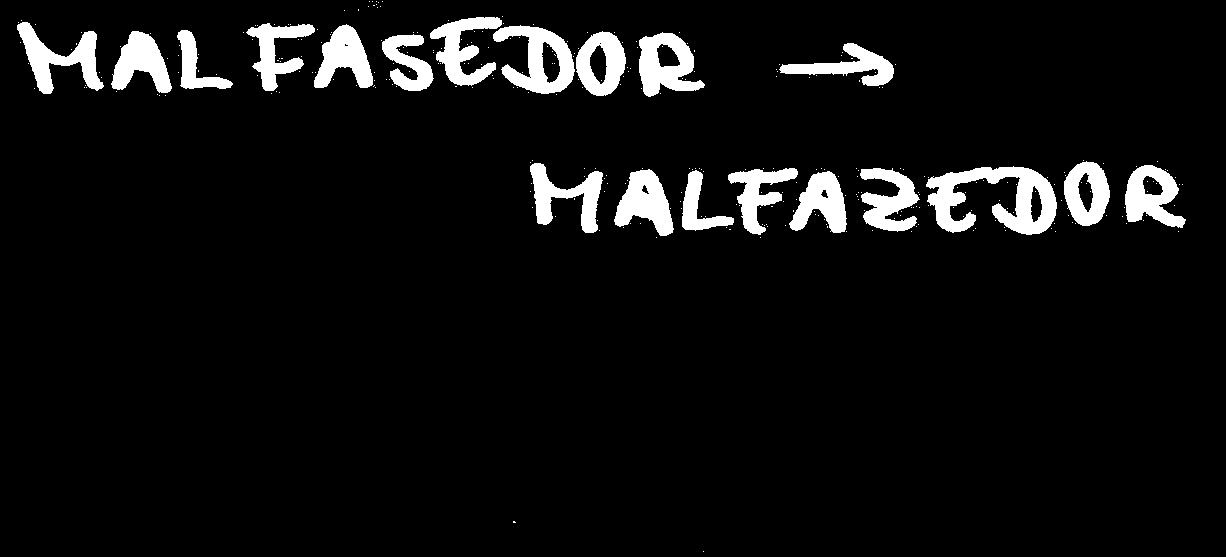 MALFASEDOR →
MALFAZEDOR